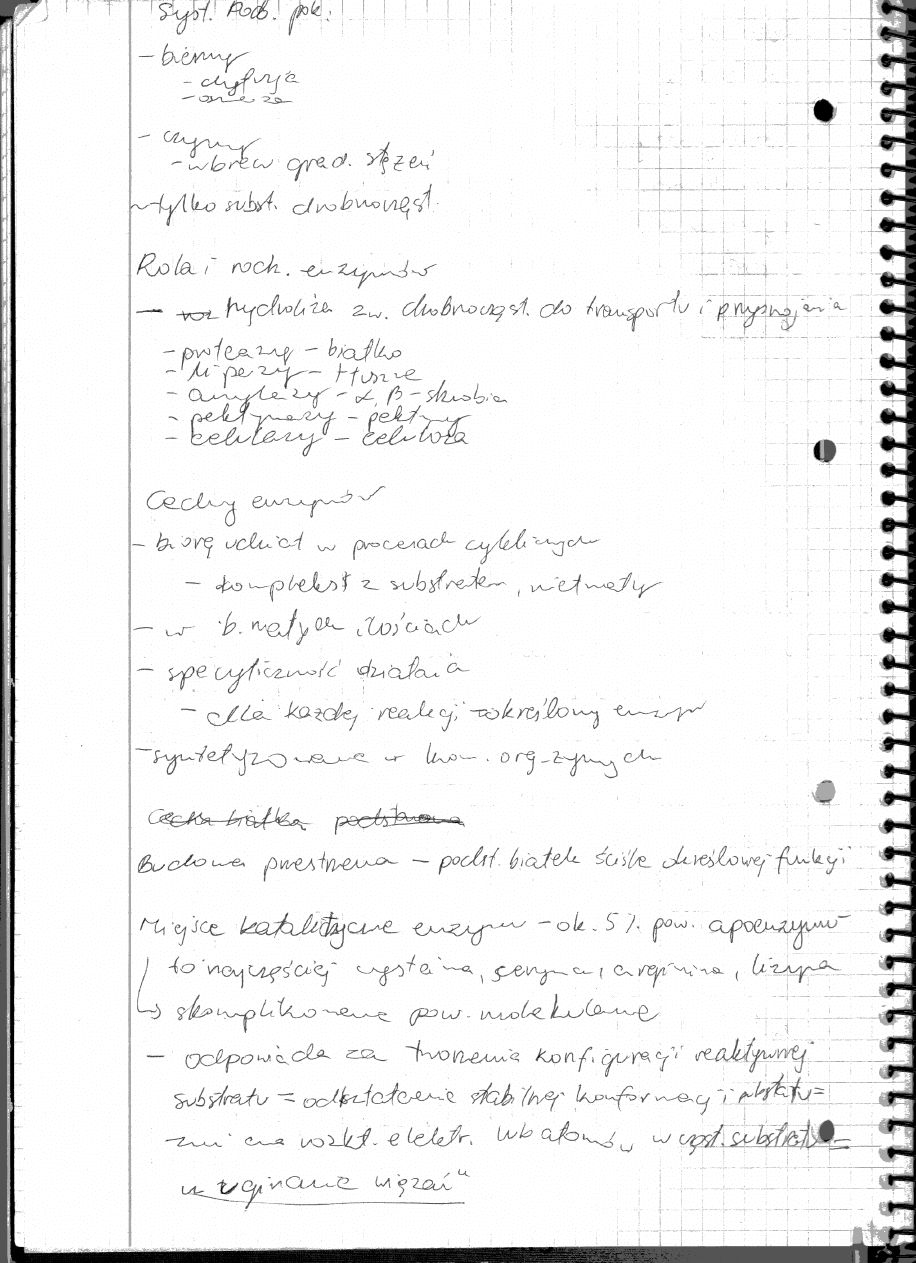 Syst. Pob. pok.
- bierny
- dyfuzja
- osmoza
- czynny
- wbrew grad. stężeń
- tylko subst. drobnocząst.
Rola i rodz. enzymów
- hydroliza zw. drobnocząst. do transportu i przyswajania
- proteazy - białko
- lipazy - tłuszcze
- amylazy - α, β - skrobia
- pektynazy - pektyny
- celulazy - celuloza
Cechy enzymów
- biorą udział w procesach cyklicznych
- kompleks z substratem, nietrwały
- w b. małych ilościach
- specyficzność działania
- dla każdej reakcji określony enzym
- syntetyzowane w kom. org. żywych
Cecha białka podstawowa
Budowa przestrzenna - podst. białek ściśle określonej funkcji
Miejsce katalityczne enzymu - ok. 5 % pow. apoenzymu
to najczęściej cysteina, seryna, arginina, lizyna
↳ skomplikowane pow. molekularne
- odpowiada za tworzenia konfiguracji reaktywnej
substratu = odkształcenie stabilnej konformacji substratu =
zmiana rozkł. elektr. w atomów w cząst. substratu =
„uginanie wiązań"